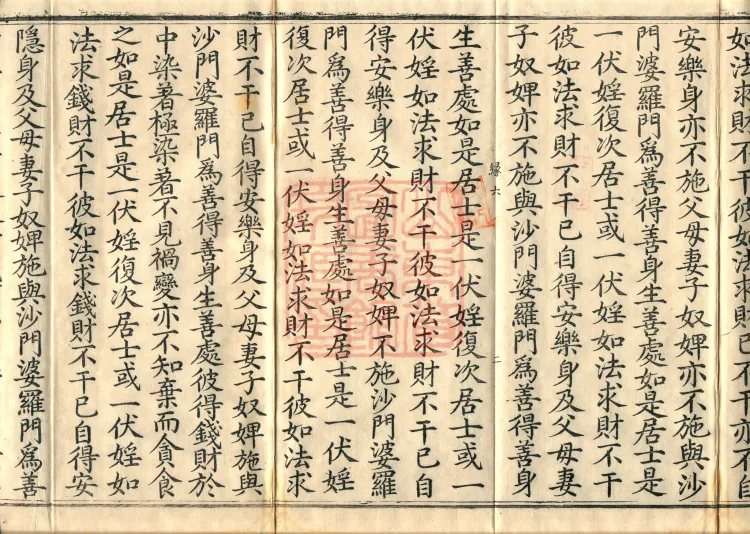 如法求財不干彼如法求財不干亦不自
安樂身亦不施父母妻子奴婢亦不施與沙
門婆羅門爲善得善身生善處如是居士是
一伏婬復次居士或一伏婬如法求財不干
彼如法求財不干已自得安樂身及父母妻
子奴婢亦不施與沙門婆羅門爲善得善身
二
生善處如是居士是一伏婬復次居士或一
伏婬如法求財不干彼如法求財不干已自
得安樂身及父母妻子奴婢不施沙門婆羅
門爲善得善身生善處如是居士是一伏婬
復次居士或一伏婬如法求財不干彼如法求
財不干已自得安樂身及父母妻子奴婢施與
沙門婆羅門爲善得善身生善處彼得錢財於
中染著極染著不見禍變亦不知棄而貪食
之如是居士是一伏婬復次居士或一伏婬如
法求錢財不干彼如法求錢財不干已自得安
隱身及父母妻子奴婢施與沙門婆羅門爲善